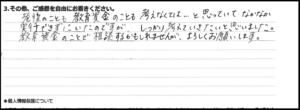 3.その他、ご感想を自由にお書きください。
老後のことも 教育資金のことも 考えなくては…と思っていてなかなか
実行できずにいたのですが しっかり考えていきたいと思いました。
教育資金のことで相談するかもしれませんが、よろしくお願いします。
●個人情報保護について